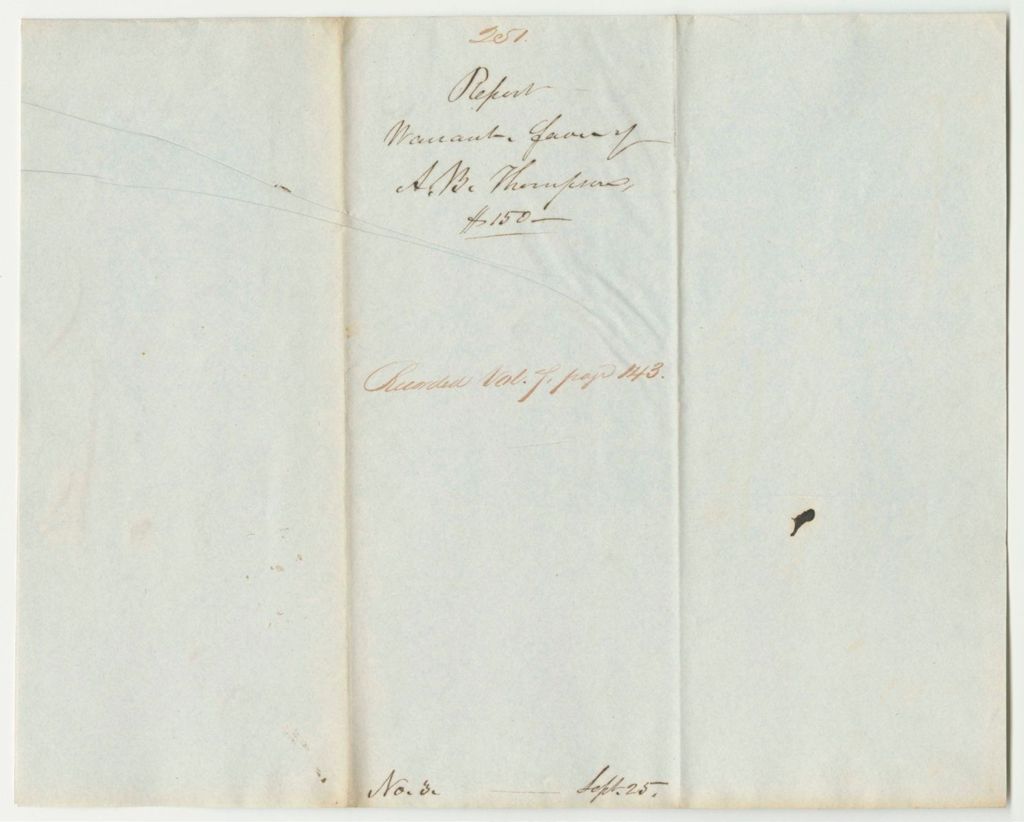 251.
Report
Warrant favor of
A. B. Thompson,
$150—
Recorded Vol. 7. page 143.
No. 3. Sept. 25.